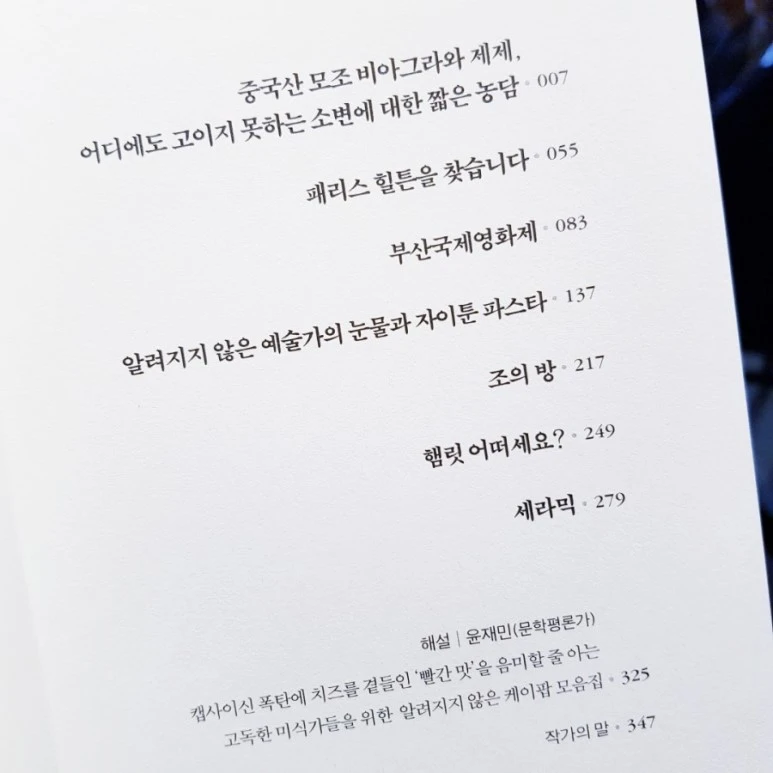 중국산 모조 비아그라와 제제,
어디에도 고이지 못하는 소변에 대한 짧은 농담 • 007
패리스 힐튼을 찾습니다 • 055
부산국제영화제 • 083
알려지지 않은 예술가의 눈물과 자이툰 파스타 • 137
조의 방 • 217
햄릿 어떠세요? • 249
세라믹 • 279
해설 | 윤재민(문학평론가)
캡사이신 폭탄에 치즈를 곁들인 ‘빨간 맛’을 음미할 줄 아는
고독한 미식가들을 위한 알려지지 않은 케이팝 모음집 • 325
작가의 말 • 347